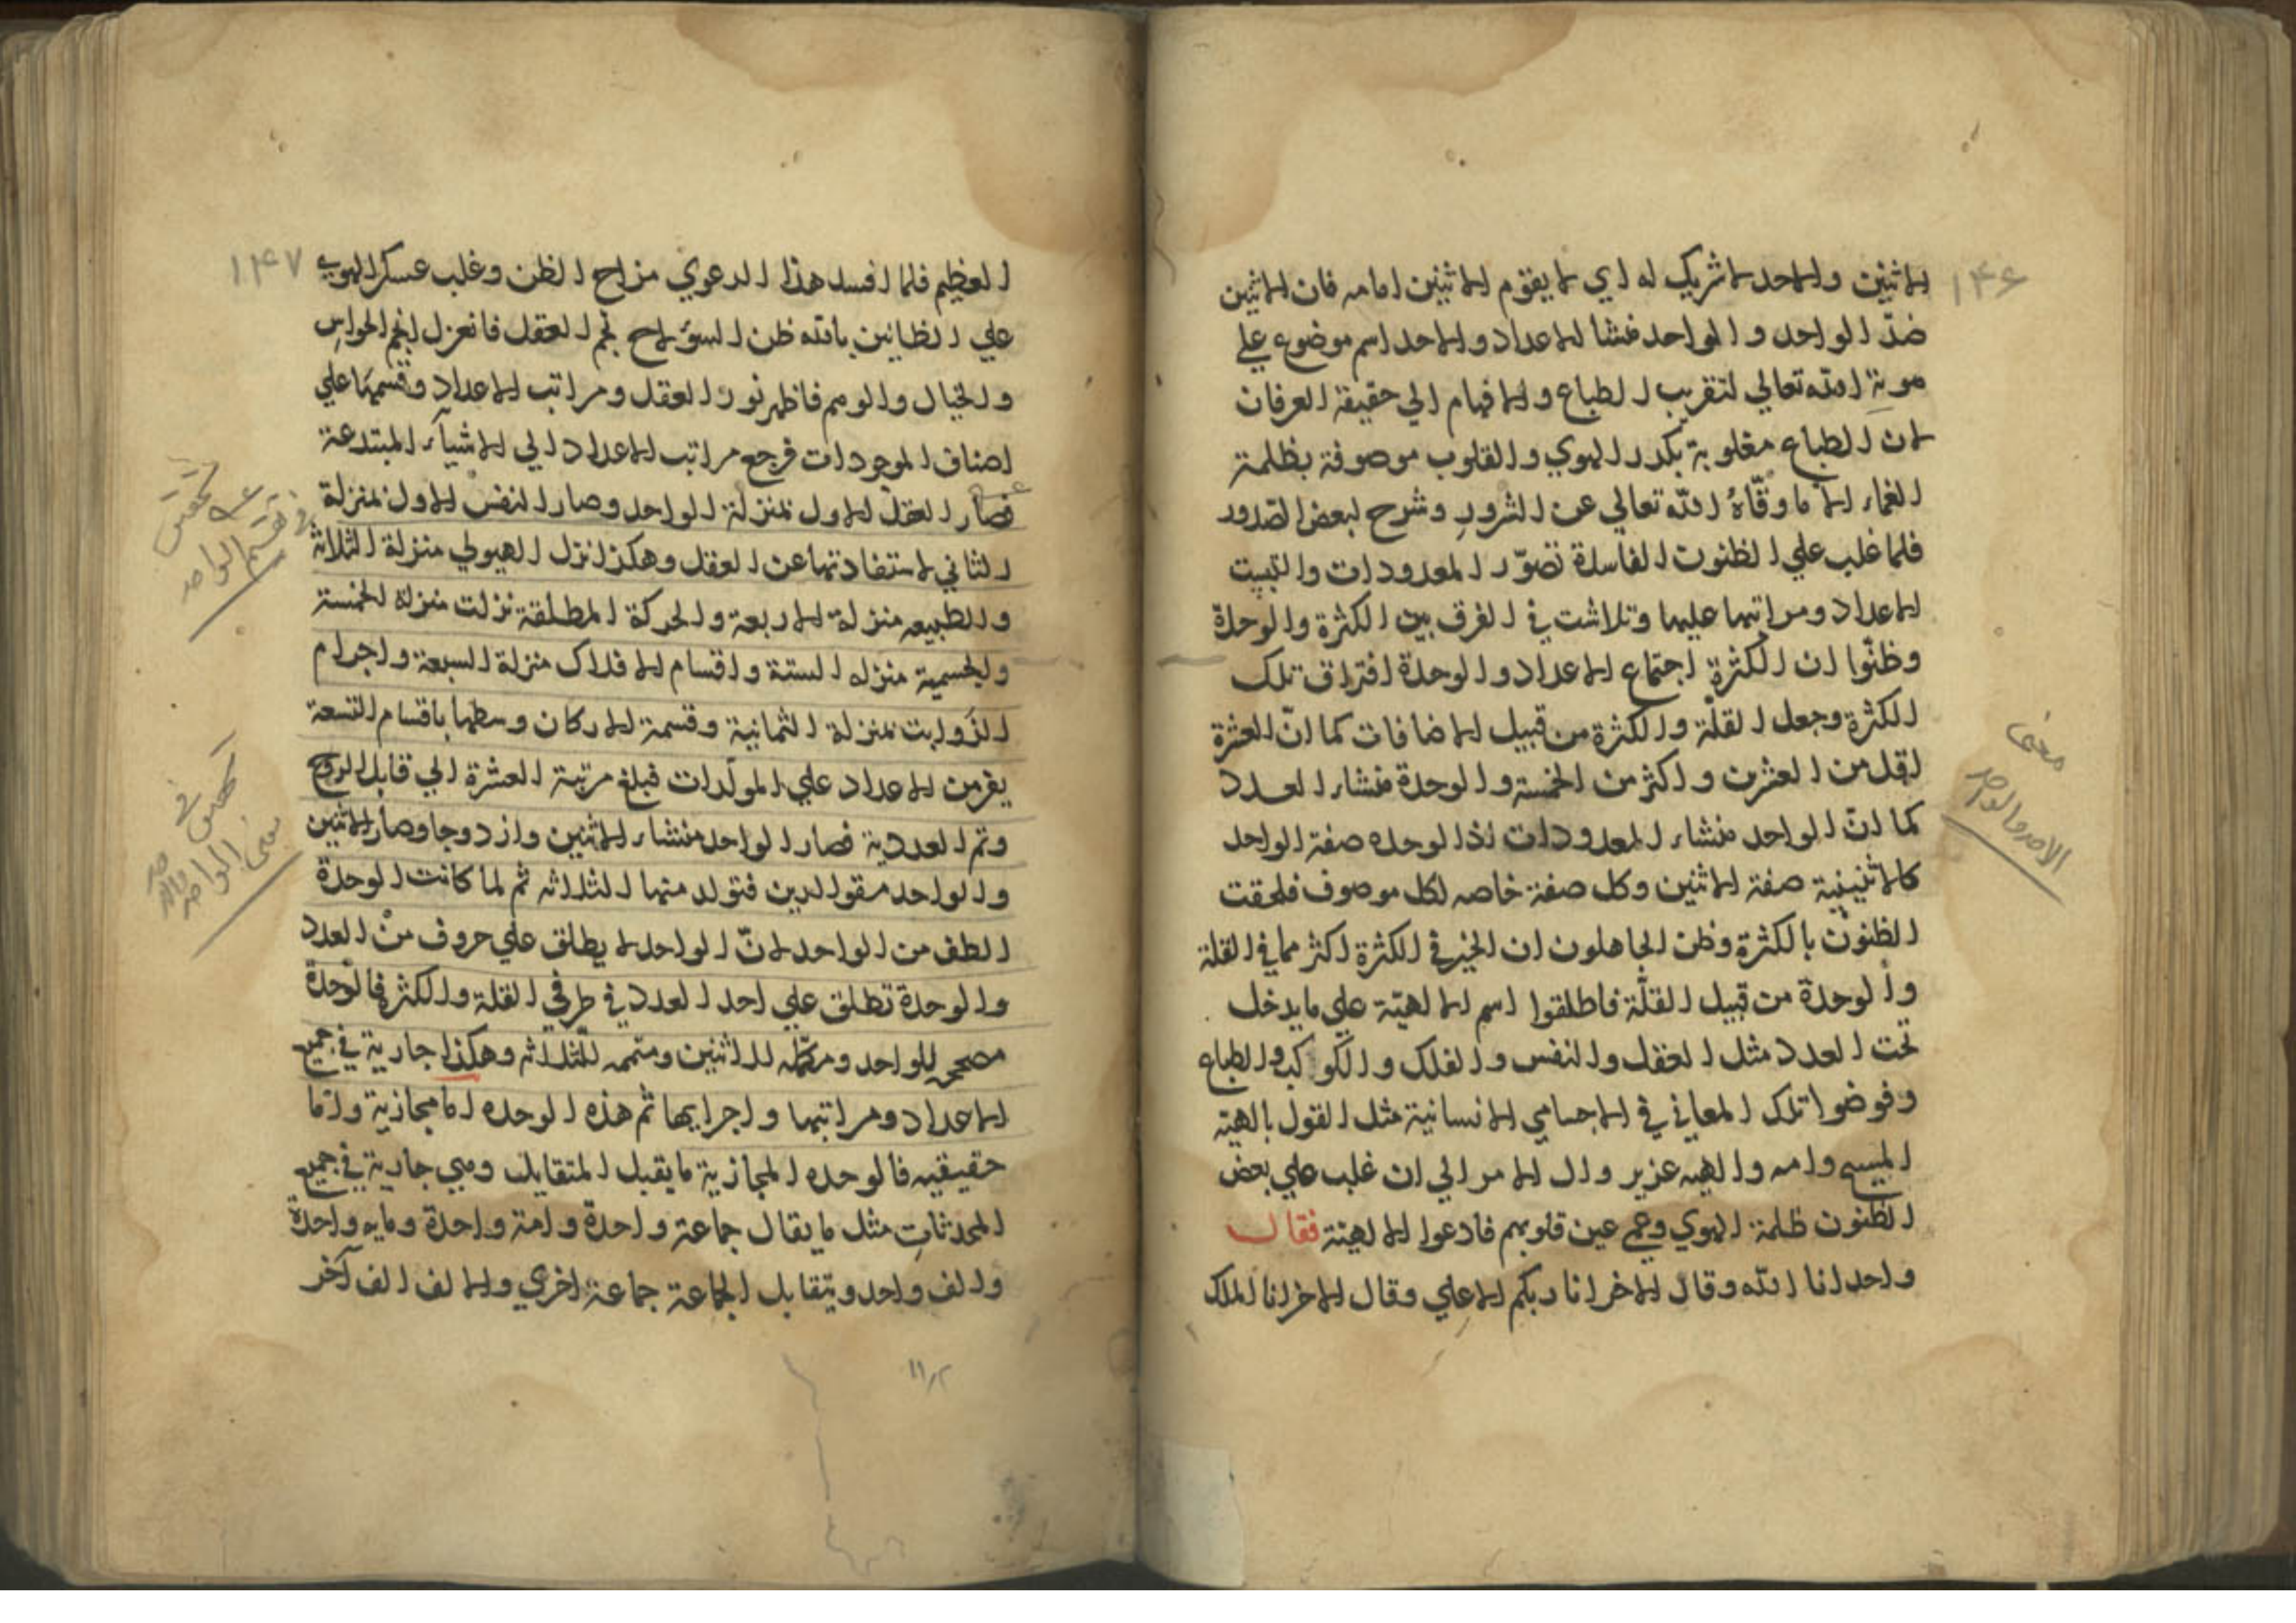 ۱۴۶
الاثنين والاحد لا شريك له اي لا يقوم الاثنين امامه فان الاثنين
ضدّ الواحد والواحد منشا الاعداد والاحد اسم موضوع علي
هوية الله تعالي لتقريب الطباع والافهام الي حقيقة العرفان
لان الطباع مغلوبة بكدر الهوي والقلوب موصوفة بظلمة
العماء الا ما وقّاهُ الله تعالي عن الشرور وشرح لبعض الصّدور
فلما غلب علي الظنون الفاسدة تصوّر المعدودات والتبيت
الاعداد ومراتبها عليها وتلاشت في الفرق بين الكثرة والوحدة
وظنّوا ان الكثرة اجتماع الاعداد والوحدة افتراق تلك
الكثرة وجعل القلّة والكثرة من قبيل الاضافات كما انّ العشرة
اقل من العشرين واكثر من الخمسة والوحدة منشاء العدد
كما انّ الواحد منشاء المعدودات اذ الوحده صفة الواحد
كالاثنينية صفة الاثنين وكل صفة خاصه لكل موصوف فلحقت
الظنون بالكثرة وظن الجاهلون ان الخير في الكثرة اكثر مما في القلة
والوحدة من قبيل القلّة فاطلقوا اسم الالهيّة علي ما يدخل
تحت العدد مثل العقل والنفس والفلك والكواكب والطباع
وفوضوا تلك المعاني في الاجسامي الانسانية مثل القول بالهيّة
المسيح وامه والهيه عزير وال الامر الي ان غلب علي بعض
الظنون ظلمة الهوي وعمي عين قلوبهم فادعوا الالهيّة فقال
واحد انا الله وقال الاخر انا ربكم الاعلي وقال الاخر انا الملك
معنى
الاحد والواحد
۱۴۷
العظيم فلما افسد هذا الدعوي مزاج الظن وغلب عسكر الهوي
علي الظانين بالله ظن السوء لاح نجم العقل فانعزل انجم الحواسِ
والخيال والوهم فاظهر نور العقل ومراتب الاعداد وقسمها علي
اصناف الموجودات فرجع مراتب الاعداد الي الاشيآء المبتدعة
فصار العقل الاول بمنزلة الواحد وصار النفس الاول بمنزلة
الثاني لاستفادتها عن العقل وهكذا نزل الهيولي منزلة الثلاثة
والطبيعه منزلة الاربعة والحركة المطلقة نزلت منزلة الخمسة
والجسمية منزله الستة واقسام الافلاك منزلة السبعة واجرام
الثوابت بمنزلة الثمانية وقسمة الاركان وسطها باقسام التسعة
من الاعداد علي المولّدات فبلغ مرتبة العشرة الي قابل الروح
وتم العددية فصار الواحد منشاء الاثنين وازدوجا وصار الاثنين
والواحد فتولد منها الثلاثه ثم لما كانت الوحدة
الطف من الواحد لانّ الواحد لا يطلق علي حروف منْ العدد
والوحدة تطلق علي احد العدد في طرفي القلة والكثرة فالوحدة
للواحد ومكمّله للاثنين ومتممه للثلاثه وهكذا جارية في جميع
الاعداد ومراتبها واجرايها ثم هذه الوحده اما مجازية وامّا
حقيقيه فالوحده المجازية ما يقبل المتقابل وهي جارية في جميع
المحدثاتِ مثل ما يقال جماعة واحدة وامة واحدة ومايه واحدة
والف واحد ويتقابل الجماعة جماعة اخري والالف الف آخر
تحقيق
في تقسيم الواحد
تحقيق في
معنى الواحد